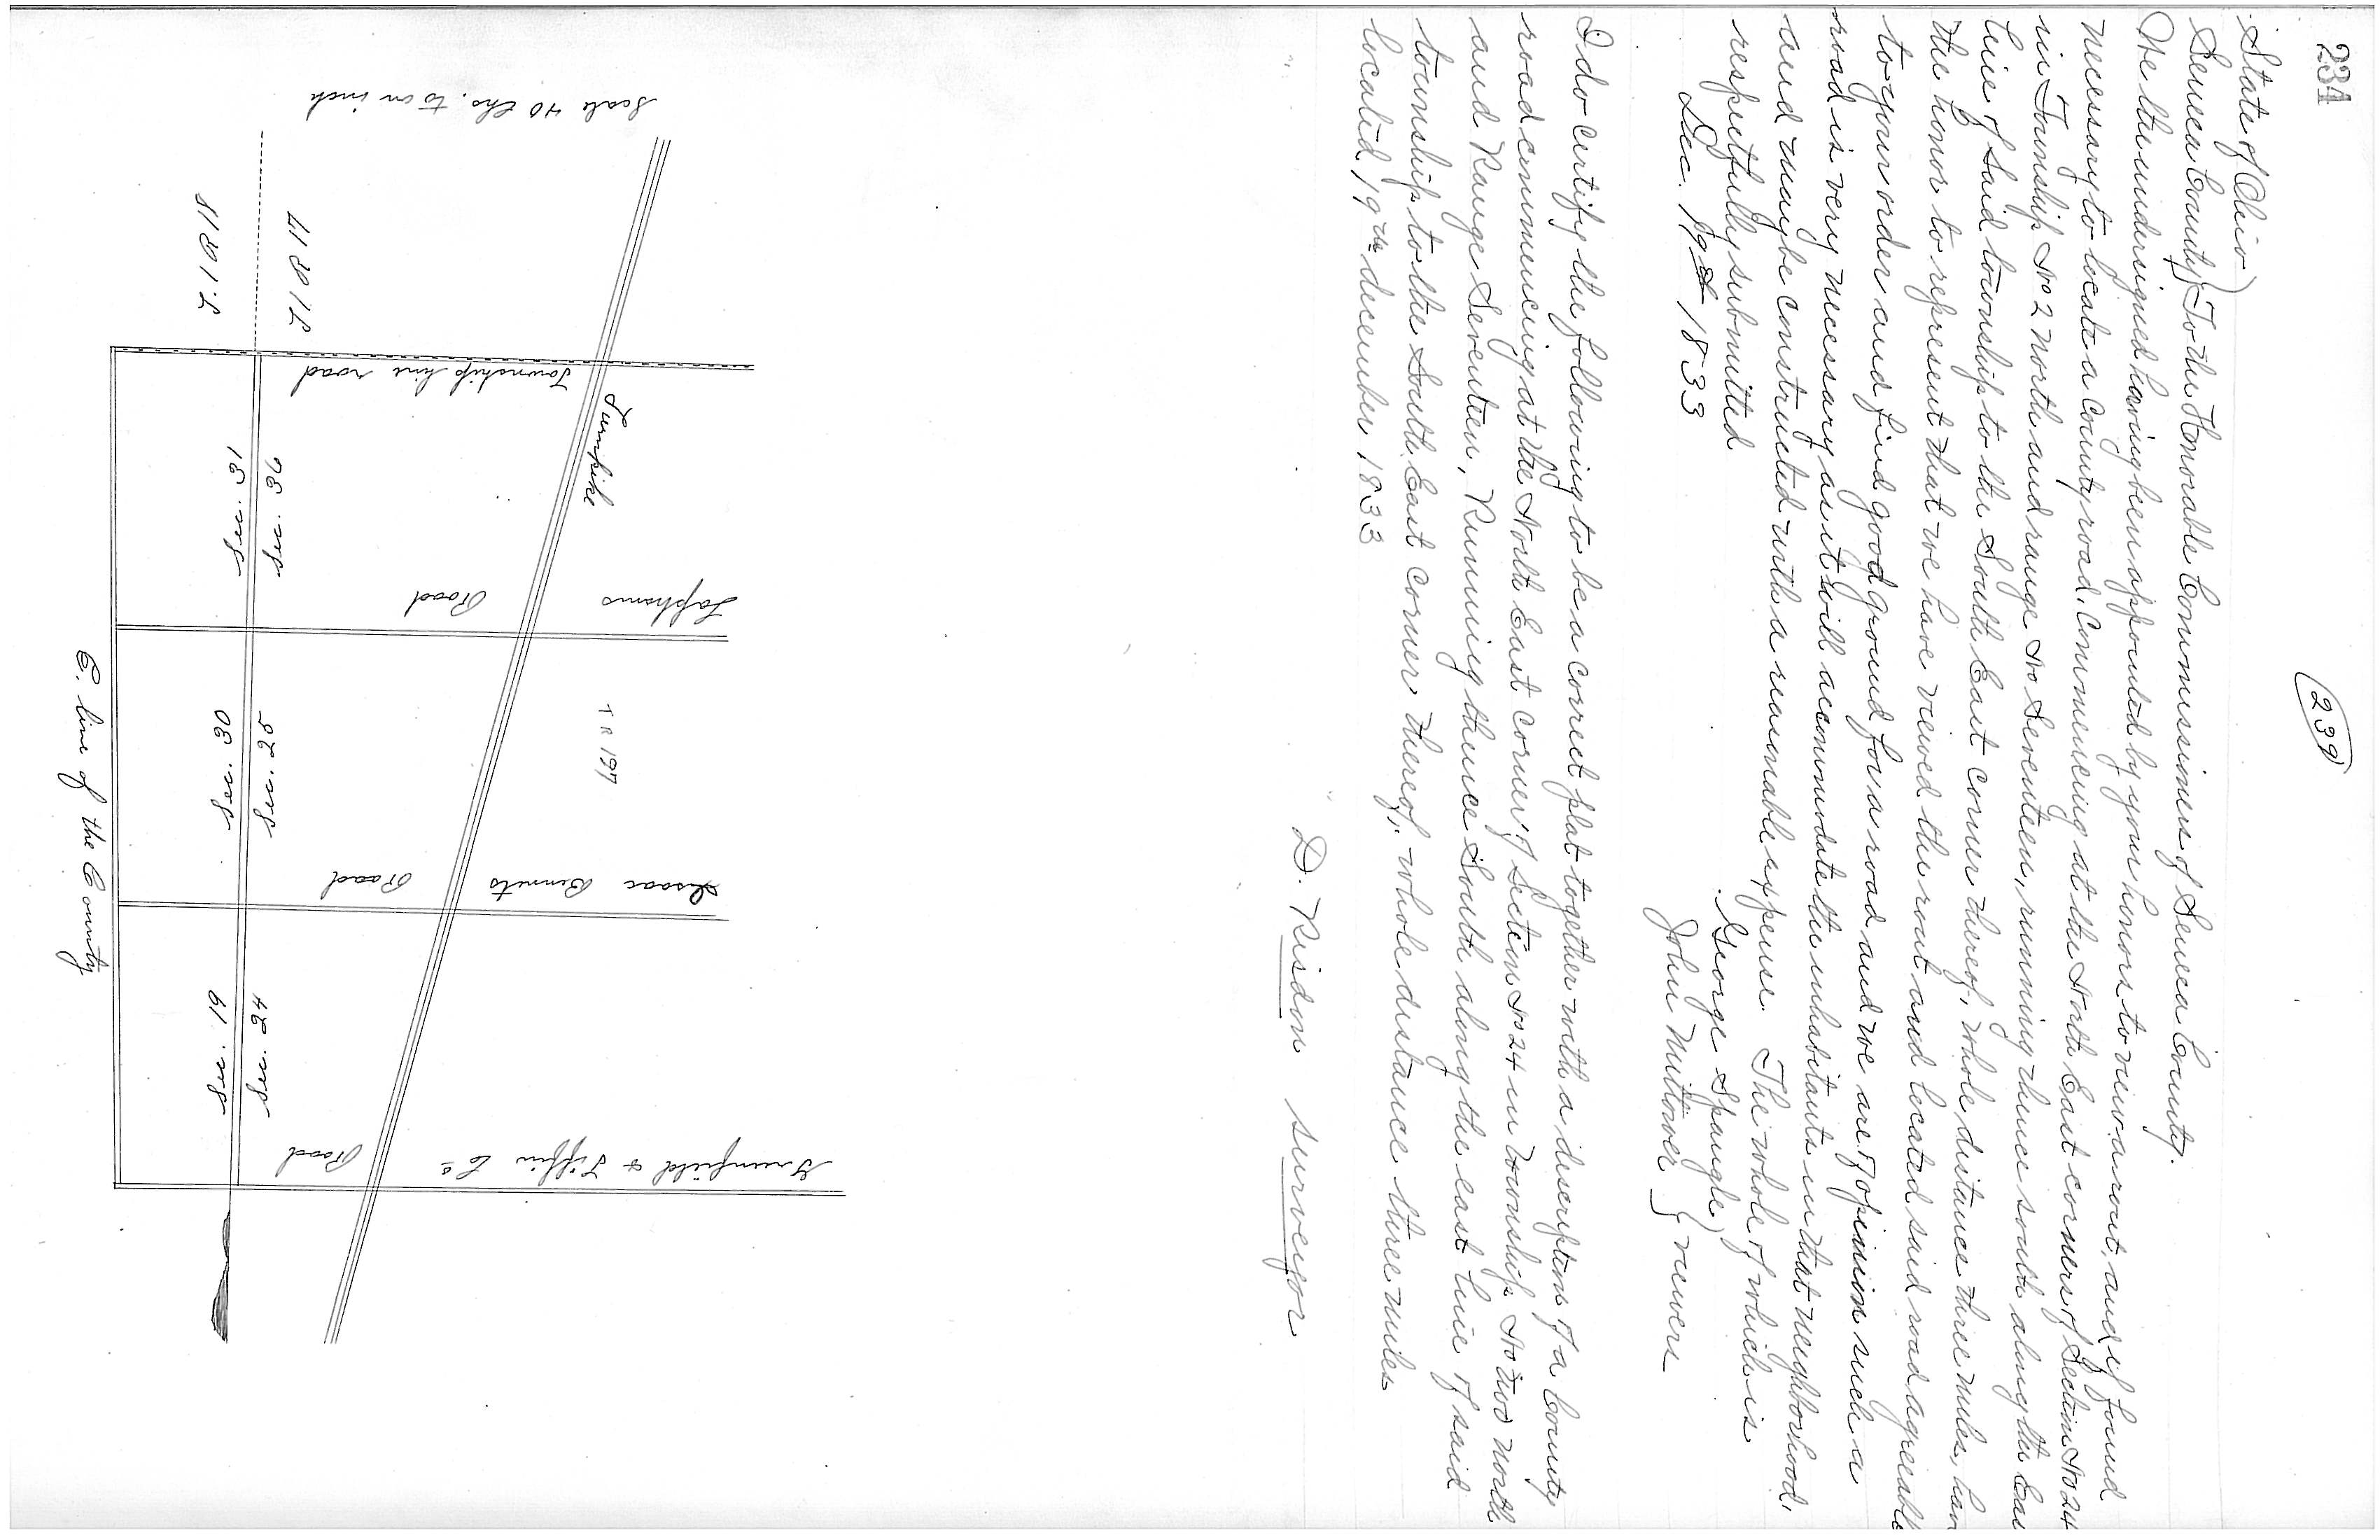 234
239
State of Ohio
Seneca County } To the Honorable Commissioners of Seneca County.
We the undersigned having been appointed by your honors to view a rout, and if found
necessary to locate a County road, Commencing at the North East corners of Section No 24
in Township No 2 north and range No Seventeen, running thence south along the Eas
line of Said township to the South East corner thereof, whole distance three miles, hav
the honor to represent that we have viewed the rout and located said road agreeable
to your order and find good ground for a road and we are of opinion such a
road is very necessary as it will accommodate the inhabitants in that neighborhood,
and may be constructed with a reasonable expense. The whole of which is
respectfully submitted
Dec. 19th 1833
George Spangle
John Mitower } viewers
I do certify the following to be a correct plat together with a description of a County
road commencing at the North East corner of Section No 24 in Township No two north
and Range Seventeen, Running thence South along the east line of said
township to the South East corner thereof, whole distance three miles
located 19th december 1833
D. Risdon surveyor
Scale 40 chs. to an inch
T. 1 R 17
T. 1 R 18
Township line road
Turnpike
sec. 36
sec. 31
Laphams Road
T R 197
sec. 25
sec. 30
Isaac Bennets Road
sec. 24
sec. 19
Greenfield & Tiffin Co Road
E. line of the County